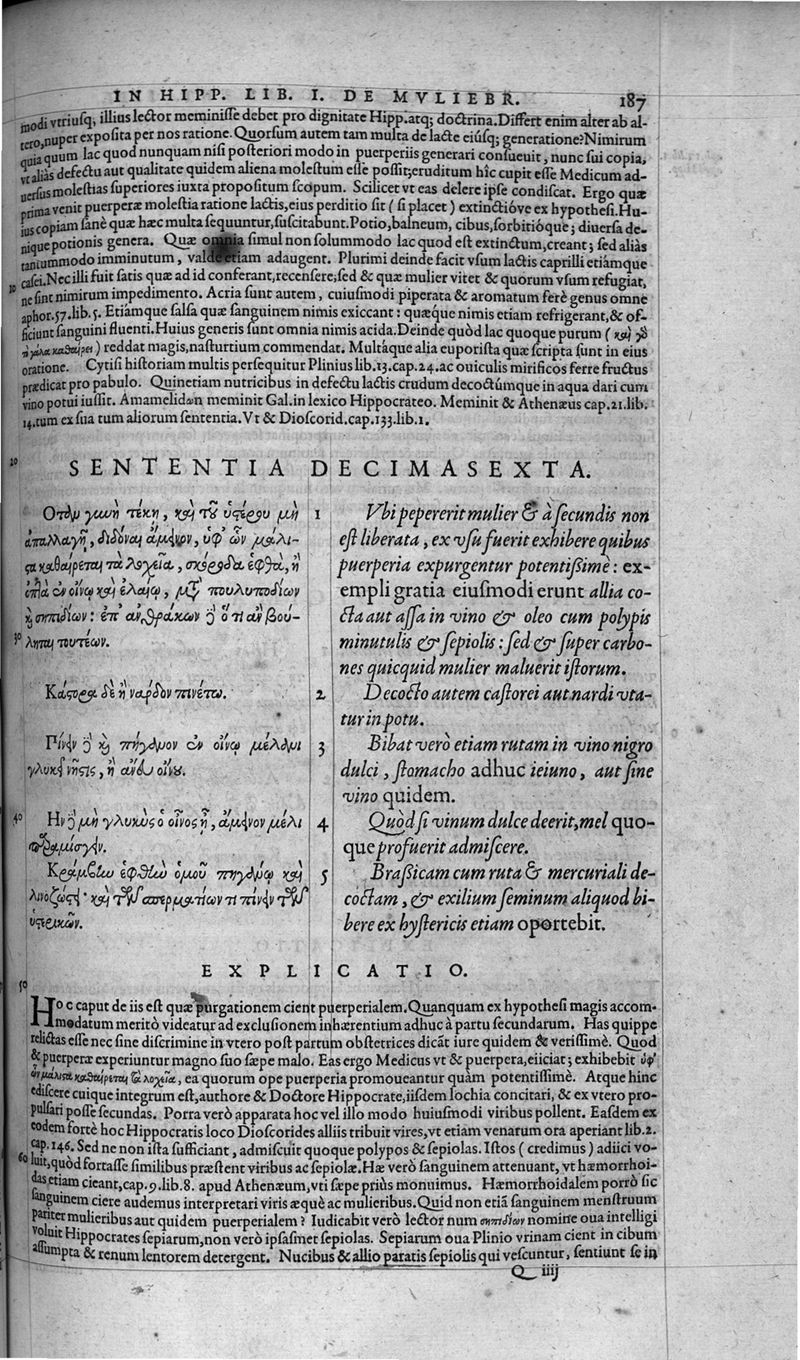 IN HIPP. LIB. I. DE MVLIEBR. 187
modi vtriusq; illius lector meminisse debet pro dignitate Hipp. atq; doctrina. Differt enim alter ab al-
tero, nuper exposita per nos ratione. Quorsum autem tam multa de lacte eiúsq; generatione? Nimirum
quia quum lac quod nunquam nisi posteriori modo in puerperiis generari consueuit, nunc sui copia,
vt aliàs defectu aut qualitate quidem aliena molestum esse possit; eruditum hîc cupit esse Medicum ad-
uersus molestias superiores iuxta propositum scopum. Scilicet vt eas delere ipse condiscat. Ergo quæ
prima venit puerperæ molestia ratione lactis, eius perditio sit (si placet) extinctióve ex hypothesi. Hu-
ius copiam sanè quæ hæc multa sequuntur, suscitabunt. Potio, balneum, cibus, sorbitióque; diuersa de-
nique potionis genera. Quæ omnia simul non solummodo lac quod est extinctum, creant; sed aliàs
tantummodo imminutum, valde etiam adaugent. Plurimi deinde facit vsum lactis caprilli etiámque
casei. Nec illi fuit satis quæ ad id conferant, recensere; sed & quæ mulier vitet & quorum vsum refugiat,
10 ne sint nimirum impedimento. Acria sunt autem, cuiusmodi piperata & aromatum ferè genus omne
aphor. 57. lib. 5. Etiámque salsa quæ sanguinem nimis exiccant: quæque nimis etiam refrigerant, & of-
ficiunt sanguini fluenti. Huius generis sunt omnia nimis acida. Deinde quòd lac quoque purum (καὶ γὸ
τὸ γάλα καθαίρει) reddat magis, nasturtium commendat. Multáque alia euporista quæ scripta sunt in eius
oratione. Cytisi historiam multis persequitur Plinius lib. 13. cap. 24. ac ouiculis mirificos ferre fructus
prædicat pro pabulo. Quinetiam nutricibus in defectu lactis crudum decoctúmque in aqua dari cum
vino potui iussit. Amamelidan meminit Gal. in lexico Hippocrateo. Meminit & Athenæus cap. 21. lib.
14. tum ex sua tum aliorum sententia. Vt & Dioscorid. cap. 133. lib. 1.
20 SENTENTIA DECIMASEXTA.
Οταν γυνὴ τέκῃ, καὶ τοῦ ὑστέρου μὴ
ἀπαλλαγῇ, διδόναι ἄμεινον, ὑφ' ὧν μάλι-
στα καθαίρεται τὰ λοχεῖα, σκόροδα ἑφθὰ, ἢ
ὀπτὰ ἐν οἴνῳ καὶ ἐλαίῳ, μετὰ πουλυποδίων
καὶ σηπιδίων: ἐπ' ἀνθράκων δὲ ὅ τι ἂν βού-
30 ληται τουτέων.
Κάστορα δὲ ἢ νάρδον πινέτω.
Πίνειν δὲ καὶ πήγανον ἐν οἴνῳ μέλανι
γλυκεῖ νῆστις, ἢ ἄνευ οἴνου.
40 Ην δὲ μὴ γλυκὺς ὁ οἶνος ᾖ, ἄμεινον μέλι
παραμίσγειν.
Κράμβην ἑφθὴν ὁμοῦ πηγάνῳ καὶ
λινοζώστει· καὶ τῶν σπερμάτων τι πίνειν τῶν
ὑστερικῶν.
1 Vbi pepererit mulier & à secundis non
est liberata, ex vsu fuerit exhibere quibus
puerperia expurgentur potentissime: ex-
empli gratia eiusmodi erunt allia co-
cta aut assa in vino & oleo cum polypis
minutulis & sepiolis: sed & super carbo-
nes quicquid mulier maluerit istorum.
2 Decocto autem castorei aut nardi vta-
tur in potu.
3 Bibat verò etiam rutam in vino nigro
dulci, stomacho adhuc ieiuno, aut sine
vino quidem.
4 Quòd si vinum dulce deerit, mel quo-
que profuerit admiscere.
5 Brassicam cum ruta & mercuriali de-
coctam, & exilium seminum aliquod bi-
bere ex hystericis etiam oportebit.
EXPLICATIO.
50
Hoc caput de iis est quæ purgationem cient puerperialem. Quanquam ex hypothesi magis accom-
modatum meritò videatur ad exclusionem inhærentium adhuc à partu secundarum. Has quippe
relictas esse nec sine discrimine in vtero post partum obstetrices dicãt iure quidem & verissimè. Quod
& puerperæ experiuntur magno suo sæpe malo. Eas ergo Medicus vt & puerpera, eiiciat; exhibebit ὑφ'
ὧν μάλιστα καθαίρεται τὰ λοχεῖα, ea quorum ope puerperia promoueantur quàm potentissimè. Atque hinc
ediscere cuique integrum est, authore & Doctore Hippocrate, iisdem lochia concitari, & ex vtero pro-
pulsari posse secundas. Porra verò apparata hoc vel illo modo huiusmodi viribus pollent. Easdem ex
eodem fortè hoc Hippocratis loco Dioscorides alliis tribuit vires, vt etiam venarum ora aperiant lib. 2.
cap. 146. Sed ne non ista sufficiant, admiscuit quoque polypos & sepiolas. Istos (credimus) adiici vo-
60 luit, quòd fortasse similibus præstent viribus ac sepiolæ. Hæ verò sanguinem attenuant, vt hæmorrhoi-
das etiam cieant, cap. 9. lib. 8. apud Athenæum, vti sæpe priùs monuimus. Hæmorrhoidalem porrò sic
sanguinem ciere audemus interpretari viris æquè ac mulieribus. Quid non etiã sanguinem menstruum
pariter mulieribus aut quidem puerperialem? Iudicabit verò lector num σηπιδίων nomine oua intelligi
voluit Hippocrates sepiarum, non verò ipsasmet sepiolas. Sepiarum oua Plinio vrinam cient in cibum
assumpta & renum lentorem detergent. Nucibus & allio paratis sepiolis qui vescuntur, sentiunt se in
Q iiij